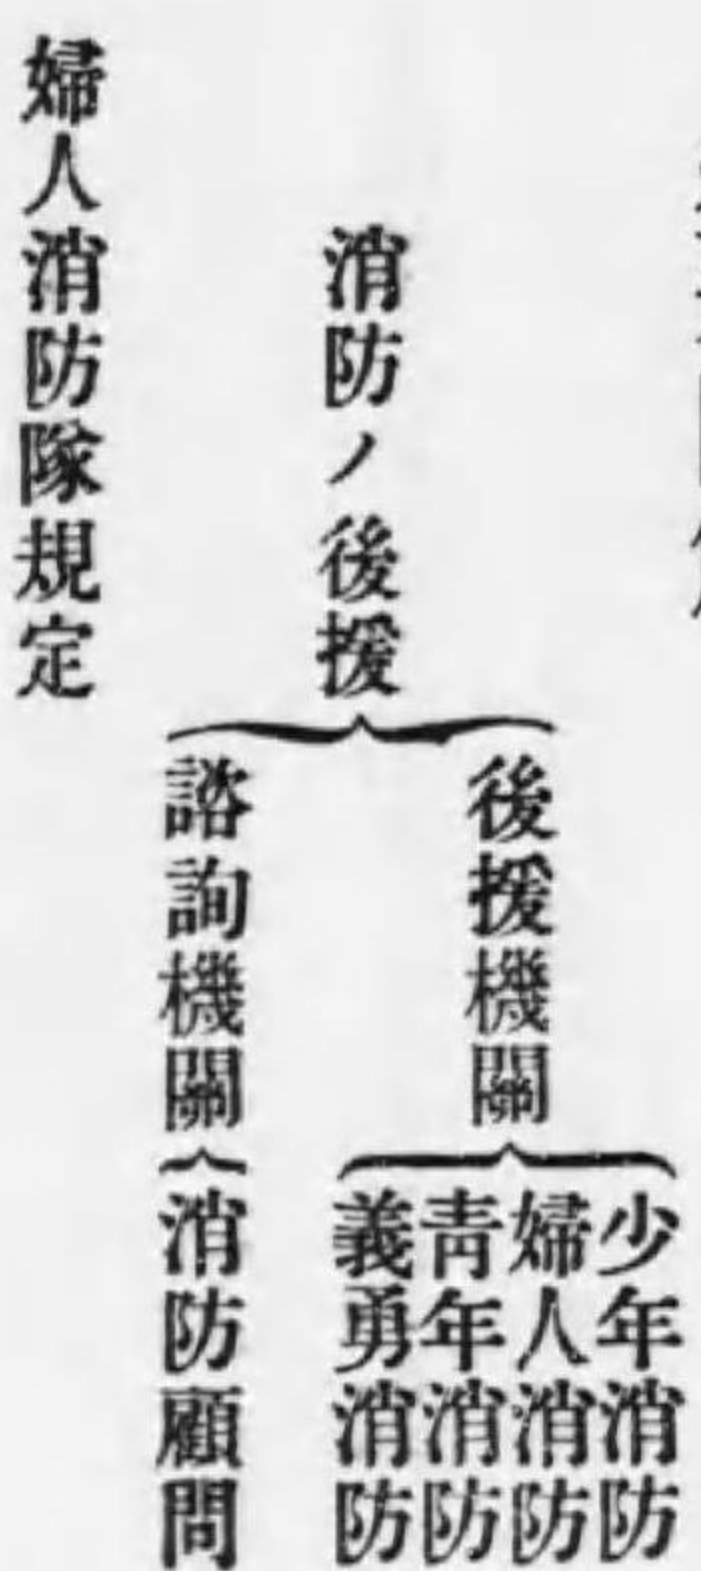 消防ノ後援
後援機關
少年消防
婦人消防
青年消防
義勇消防
諮詢機關
消防顧問
婦人消防隊規定